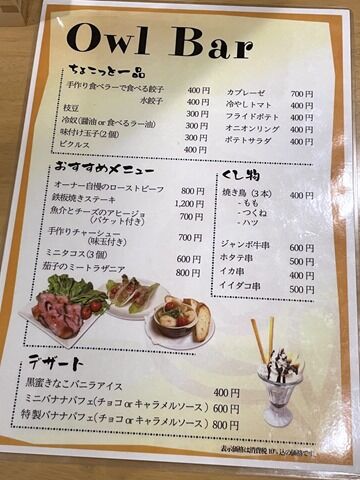 Owl Bar
ちょこっと一品
手作り食べラーで食べる餃子 400円
水餃子 400円
枝豆 300円
冷奴(醤油 or 食べるラー油) 300円
味付け玉子(2個) 300円
ピクルス 400円
カプレーゼ 700円
冷やしトマト 400円
フライドポテト 400円
オニオンリング 400円
ポテトサラダ 400円
おすすめメニュー
オーナー自慢のローストビーフ 800円
鉄板焼きステーキ 1,200円
魚介とチーズのアヒージョ 700円
(バケット付き)
手作りチャーシュー 700円
(味玉付き)
ミニタコス(3個) 600円
茄子のミートラザニア 800円
くし物
焼き鳥(3本) 400円
- もも
- つくね
- ハツ
ジャンボ牛串 600円
ホタテ串 500円
イカ串 400円
イイダコ串 500円
デザート
黒蜜きなこバニラアイス 400円
ミニバナナパフェ(チョコ or キャラメルソース) 600円
特製バナナパフェ(チョコ or キャラメルソース) 800円
表示価格は消費税10%込の価格です。